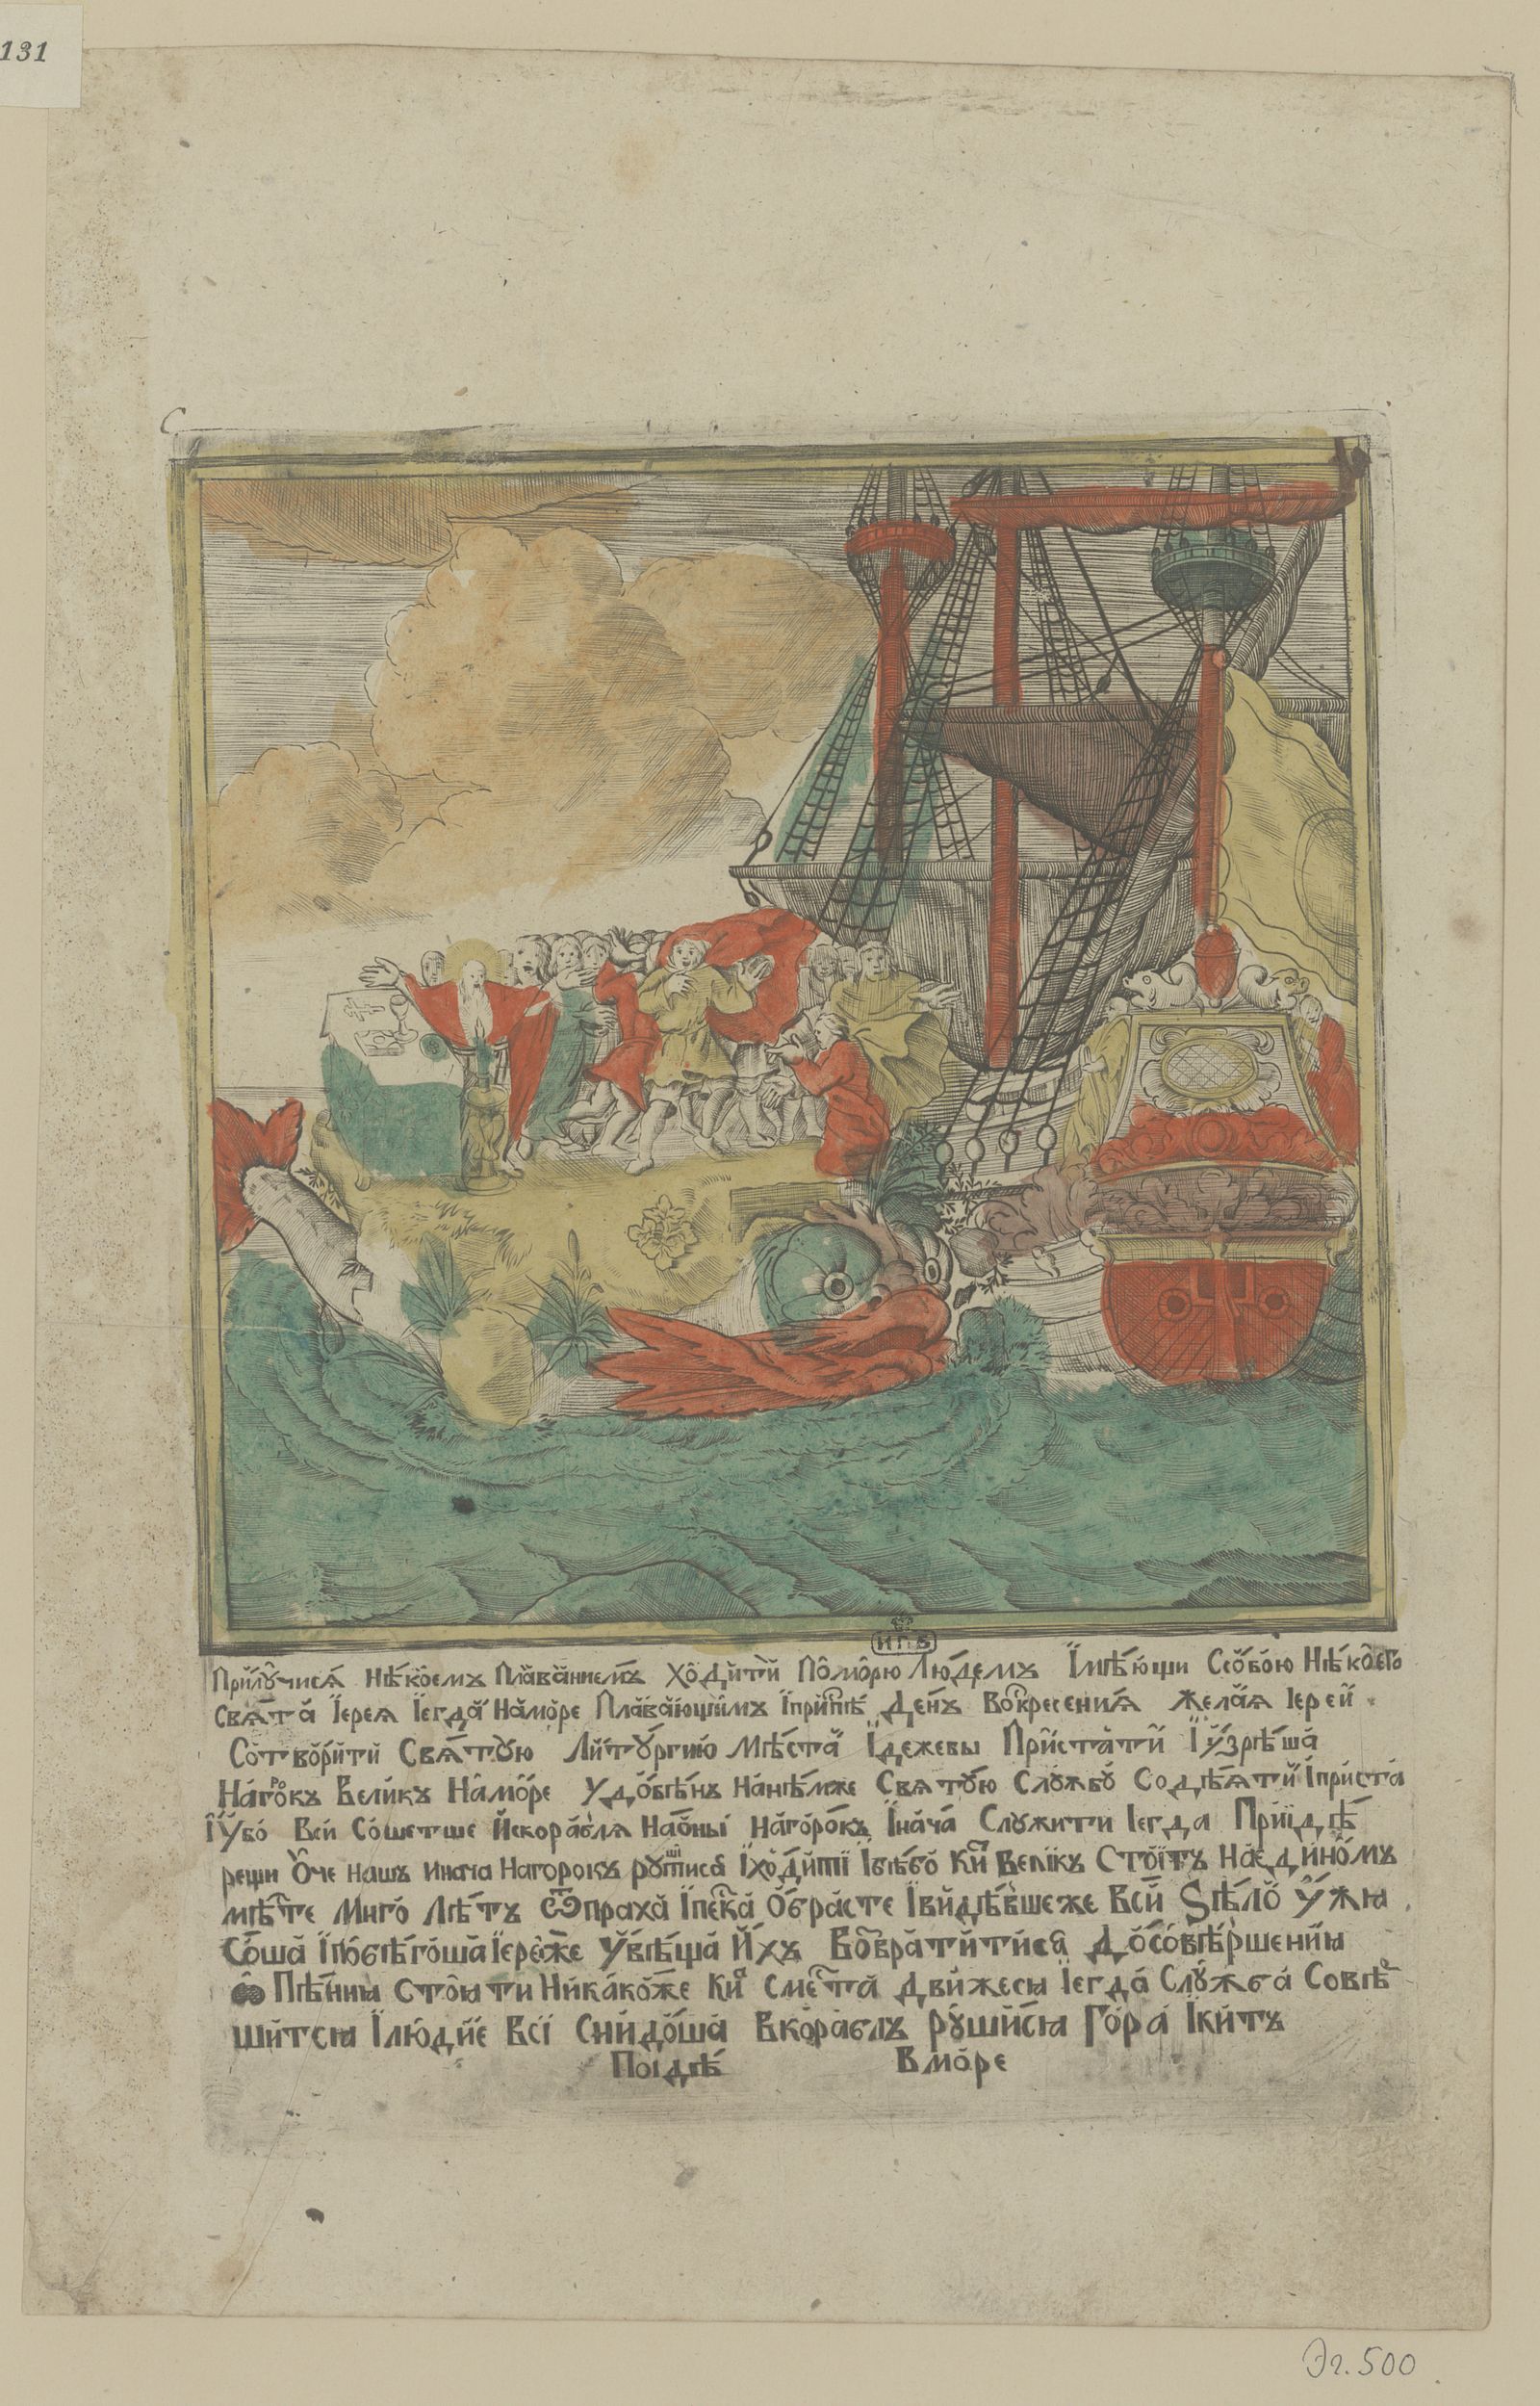 131
ИПБ
Прилꙋ́чисѧ Нѣ́коемъ Пла́ваниемъ Ходи́ти По́морю Лю́демъ Їмѣ́ющи Ссобо́ю Нѣ́коего
Свѧ́та Їереѧ Їегда̀ На́море Пла́вающимъ Їприспѣ́ День Воскресениѧ Жела́ѧ Їерей
Сотвори́ти Свѧту́ю Литу́ргию Мѣ́ста Їдежебы Приста́ти Їузрѣ́ша
На́горокъ Вели́къ На́море Удо́бѣнъ На́нѣмже Свѧту́ю Слу́жбу Содѣ́ѧти Їприста
Їубо́ Вси Со́шетше Искора́блѧ На́оны На́горокъ Їнача́ Служити Їегда Прїидѣ́
рещи О́че нашъ инача Нагорокъ рушитисѧ Їходи́ти Їбѣ́бо Китъ Вели́къ Стои́тъ На́едино́мъ
мѣ́сте Мно́го Лѣ́тъ Ѿпраха Їпеска́ О́брасте Їви́дѣвшеже Вси́ Ѕѣло́ У́жа
Со́ша Їпобѣго́ша Їерейже Увѣща́ И́хъ Возврати́тисѧ До́совѣршениꙗ
Пѣ́ниꙗ Стоꙗти Ника́може Китъ Сместа Дви́жесꙗ Їегда́ Слу́жба Совѣр
ши́тсꙗ Їлю́дие Всї Сни́доша Вкора́блъ Рушисꙗ Гора́ Їки́тъ
Поїдѣ́ Вмо́ре
Эл. 500